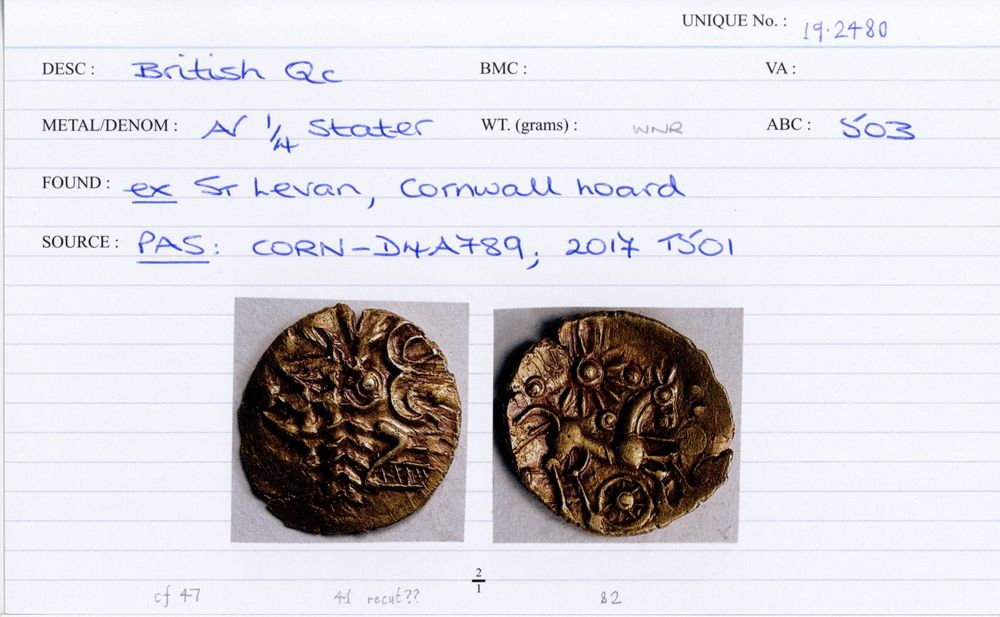 UNIQUE No. : 19.2480
DESC : British Qc BMC : VA :
METAL/DENOM : AV 1/4 Stater WT. (grams) : WNR ABC : 503
FOUND : ex St Levan, Cornwall hoard
SOURCE : PAS: CORN-D4A789; 2017 T501
2/1
cf 47 41 recut?? 82